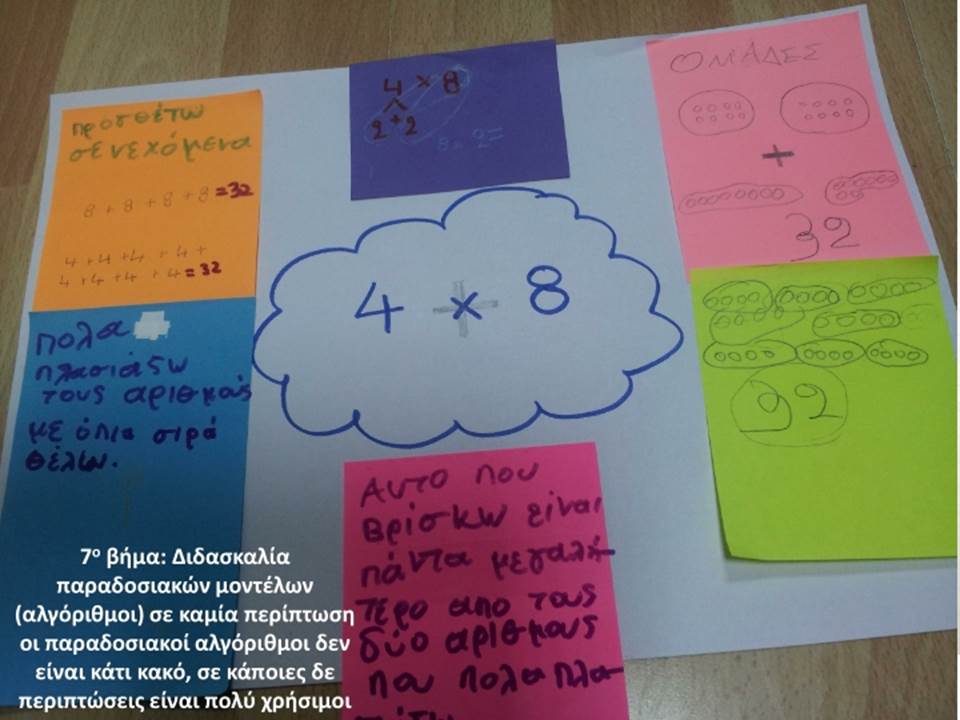 4 × 8
2 + 2
8 × 2 =
ΟΜΑΔΕΣ
+
32
προσθέτω
σενεχόμενα
8 + 8 + 8 + 8 = 32
4 + 4 + 4 + 4 +
4 + 4 + 4 + 4 = 32
4 × 8
πολα
πλασιάζω
τους αριθμούς
με όπια σιρά
θέλω.
Αυτο που
βρίσκω είναι
πάντα μεγαλή-
τερο απο τους
δύο αριθμους
που πολαπλα-
7ο βήμα: Διδασκαλία
παραδοσιακών μοντέλων
(αλγόριθμοι) σε καμία περίπτωση
οι παραδοσιακοί αλγόριθμοι δεν
είναι κάτι κακό, σε κάποιες δε
περιπτώσεις είναι πολύ χρήσιμοι